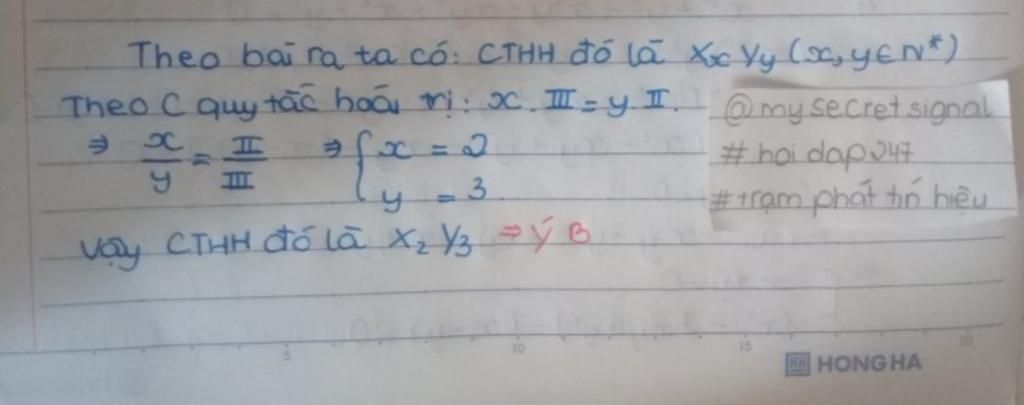 Theo bài ra ta có: CTHH đó là XxYy (x,y∈N*)
Theo C quy tắc hoá trị: x.III=y.II.
⇒ x/y = II/III ⇒ { x = 2
y = 3
Vậy CTHH đó là X₂Y₃ ⇒ Ý B
@mysecretsignal
#hoidap247
#trạm phát tín hiệu
5 10 15 20
HH HONG HA